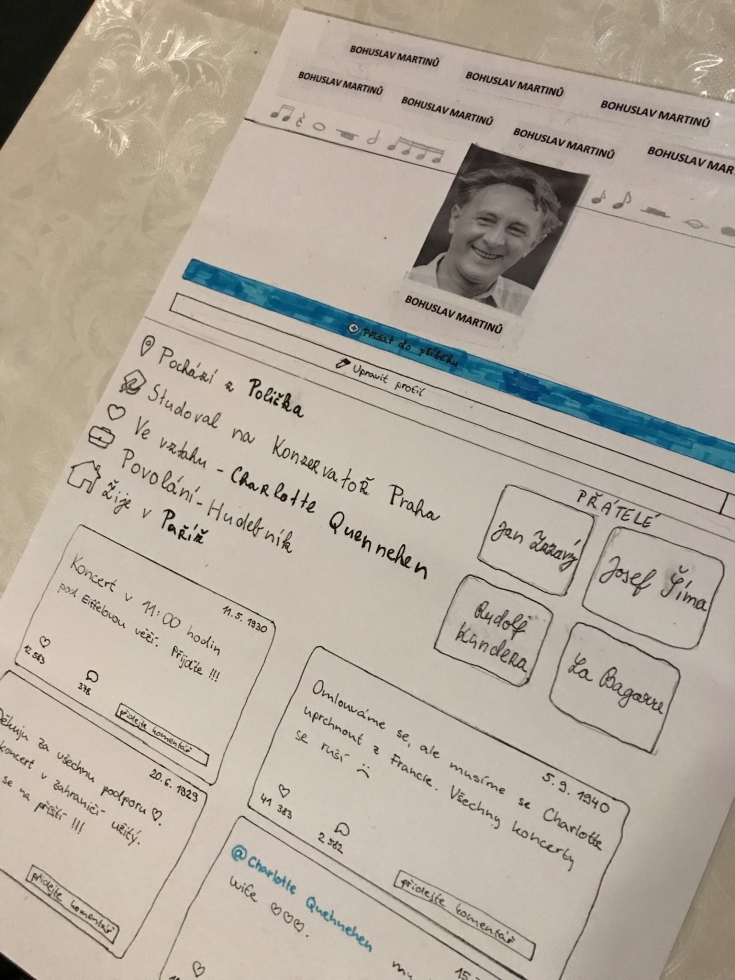 BOHUSLAV MARTINŮ
BOHUSLAV MARTINŮ
BOHUSLAV MARTINŮ
BOHUSLAV MARTINŮ
BOHUSLAV MARTINŮ
BOHUSLAV MARTINŮ
BOHUSLAV MAR
BOHUSLAV MARTINŮ
Přidat do příběhu
Upravit profil
Pochází z Polička
Studoval na Konzervatoř Praha
Ve vztahu - Charlotte Quennehen
Povolání - Hudebník
Žije v Paříž
PŘÁTELÉ
Jan Zrzavý
Josef Šíma
Rudolf Kundera
La Bagarre
11.5. 1930
Koncert v 11:00 hodin
pod Eiffelovou věží. Přijďte !!!
12 583
378
přidejte komentář
20.6. 1929
Děkuju za všechnu podporu
koncert v zahraničí užitý.
se na příští !!!
přidejte komentář
5.9. 1940
Omlouváme se, ale musíme se Charlotte
uprchnout z Francie. Všechny koncerty
se ruší :(
41 383
2 582
přidejte komentář
@Charlotte Quehnehen
my
wife
15.